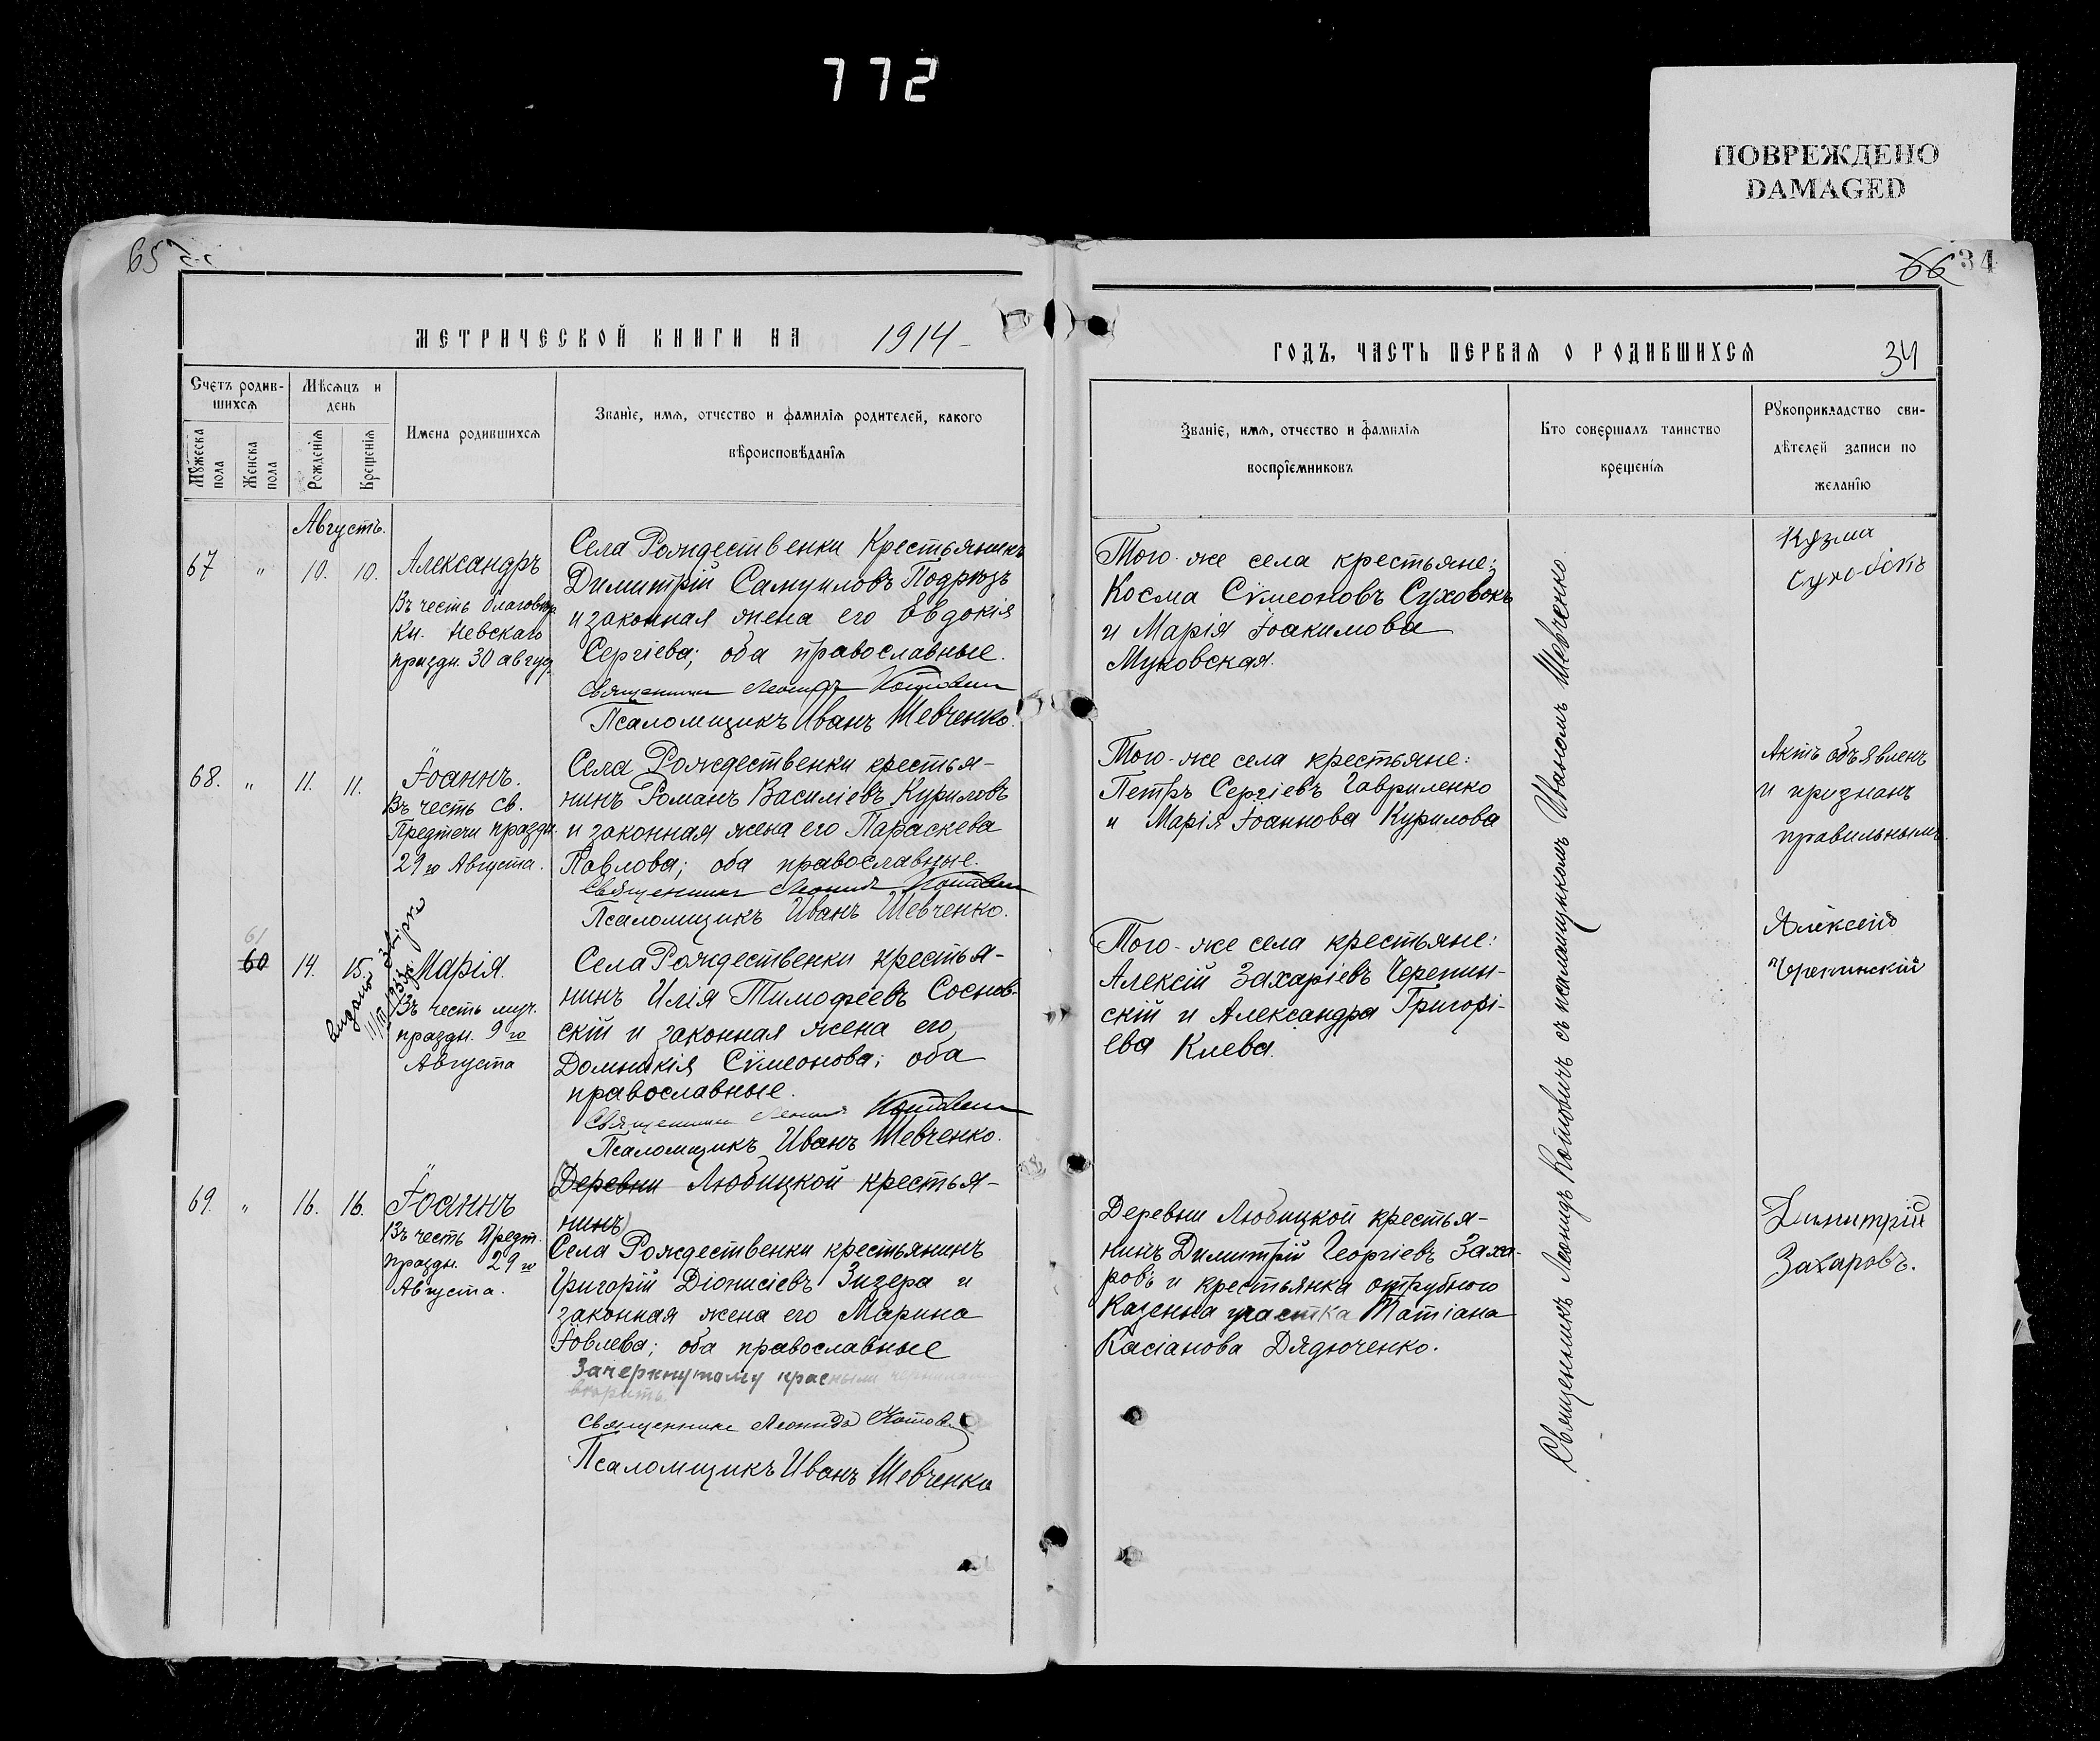 772
ПОВРЕЖДЕНО
DAMAGED
65
66 34
МЕТРИЧЕСКОЙ КНИГИ НА 1914
ГОДЪ, ЧАСТЬ ПЕРВАЯ О РОДИВШИХСЯ
34
Счетъ родив-
шихся
Мѣсяцъ и
день
Мужеска
пола
Женска
пола
Рожденія
Крещенія
Имена родившихся
Званіе, имя, отчество и фамилія родителей, какого
вѣроисповѣданія
Званіе, имя, отчество и фамилія
воспріемниковъ
Кто совершалъ таинство
крещенія
Рукоприкладство сви-
дѣтелей записи по
желанію
Августъ.
67 " 10. 10.
Александръ
Въ честь благовѣр.
Кн. Невскаго
праздн. 30 август.
Села Рождественки Крестьянинъ
Димитрій Самуиловъ Подрюзъ
и законная жена его Евдокія
Сергіева; оба православные.
Священникъ Леонидъ Котович
Псаломщикъ Иванъ Шевченко.
Того-же села крестьяне:
Косма Сѵмеоновъ Суховокъ
и Марія Іоакимова
Муковская.
Кузма
68. " 11. 11.
Іоаннъ.
Въ честь св.
Предтечи праздн.
29го Августа.
Села Рождественки крестья-
нинъ Романъ Василіевъ Куриловъ
и законная жена его Параскева
Павлова; оба православные.
Священникъ Леонидъ Котович
Псаломщикъ Иванъ Шевченко.
Того-же села крестьяне:
Петръ Сергіевъ Гавриленко
и Марія Іоаннова Курилова
Актъ объявленъ
и признанъ
правильнымъ.
61
60 14. 15.
Марія.
Въ честь муч.
праздн. 9го
Августа
Села Рождественки крестья-
нинъ Илія Тимофеевъ Соснов-
скій и законная жена его
Домникія Сѵмеонова; оба
православные.
Священникъ Леонидъ Котович
Псаломщикъ Иванъ Шевченко.
Того-же села крестьяне:
Алексій Захаріевъ Черепин-
скій и Александра Григорі-
ева Киева.
Алексей
Черепинскій
69. " 16. 16.
Іоаннъ
Въ честь Предт.
праздн. 29го
Августа.
Деревни Любицкой крестья-
нинъ
Села Рождественки крестьянинъ
Григорій Діонисіевъ Зизера и
законная жена его Марина
Іовлева; оба православные
Зачеркнутому красными чернилами
вѣрить.
Священникъ Леонидъ Котович
Псаломщикъ Иванъ Шевченко
Деревни Любицкой крестья-
нинъ Димитрій Георгіевъ Заха-
ровъ и крестьянка отрубного
Казенна участка Татіана
Касіанова Дядюченко.
Димитрій
Захаровъ.
Священникъ Леонидъ Котовичъ съ псаломщикомъ Иваномъ Шевченко